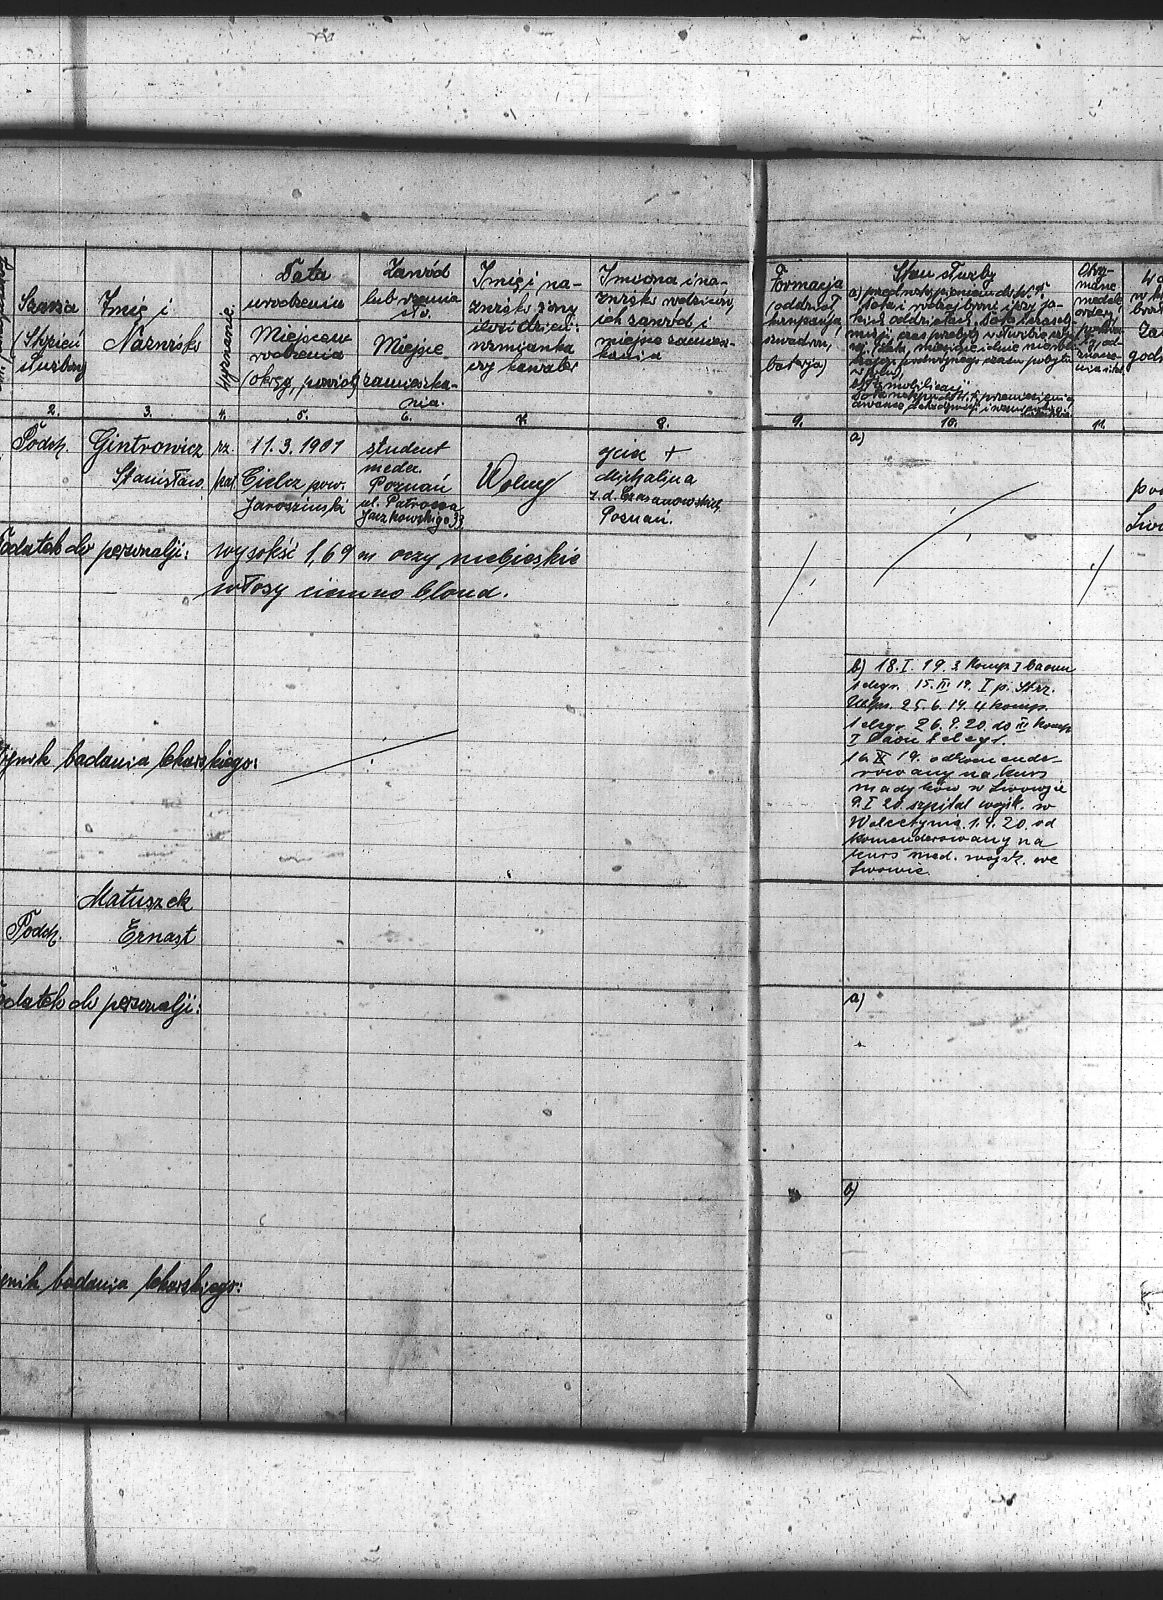 Szarża
(Stopień
służbowy
Imię i
Nazwisko
Wyznanie.
Data
urodzenia
Miejscow.
urodzenia
(okręg, powiat)
Zawód
lub rzemiosło.
Miejsce
zamieszka-
nia.
Imię i na-
zwisko żony
ilość dzieci:
wzmianka
czy kawaler
Imiona i na-
zwisko rodziców,
ich zawód i
miejsce zamiesz-
kania
Formacja
(oddział
kompanja
szwadron,
baterja)
Stan służby
Otrzy-
mane
medale
ordery
2. 3. 4. 5. 6. 7. 8. 9. 10. 11.
Podch. Gintrowicz
Stanisław
rz.
kat.
11.3.1901
Cielcz pow.
Jarociński
student
medec.
Poznań
ul. Patrona
Jackowskiego 33
Wolny
ojciec +
Michalina
z d. Czasanowskich
Poznań.
a)
Dodatek do personalji: wysokość 1,69 m oczy niebieskie
włosy ciemno blond.
b) 18.I.19. 3 Komp I baonu
telegr. 15.III.19. I p. Strz.
Wlkp. 25.6.19. 4 komp.
telegr. 26.9.20. do III komp
I baon telegr.
16.X.19. odkomende-
rowany na kurs
medyków w Lwowie
9.I 20. szpital wojsk. w
Wolsztynie. 1.4.20. od
komenderowany na
kurs med. wojsk. we
Lwowie.
Wynik badania lekarskiego:
Matuszek
Podch. Ernast
Dodatek do personalji:
a)
b)
Wynik badania lekarskiego: